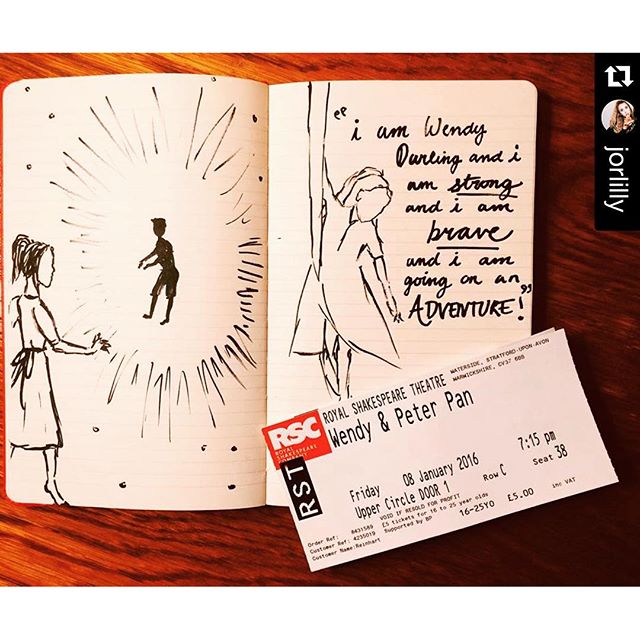 jorlilly
"i am Wendy
Darling and i
am strong
and i am
brave
and i am
going on an
ADVENTURE!"
RSC
ROYAL
SHAKESPEARE
COMPANY
RST
ROYAL SHAKESPEARE THEATRE
WATERSIDE, STRATFORD-UPON-AVON
WARWICKSHIRE, CV37 6BB
Wendy & Peter Pan
7:15 pm
Friday 08 January 2016
Upper Circle DOOR 1 Row C Seat 38
VOID IF RESOLD FOR PROFIT
16-25YO £5.00 inc VAT
Order Ref: 8431589 £5 tickets for 16 to 25 year olds
Customer Ref: 4235019 Supported by BP
Customer Name: Reinhart